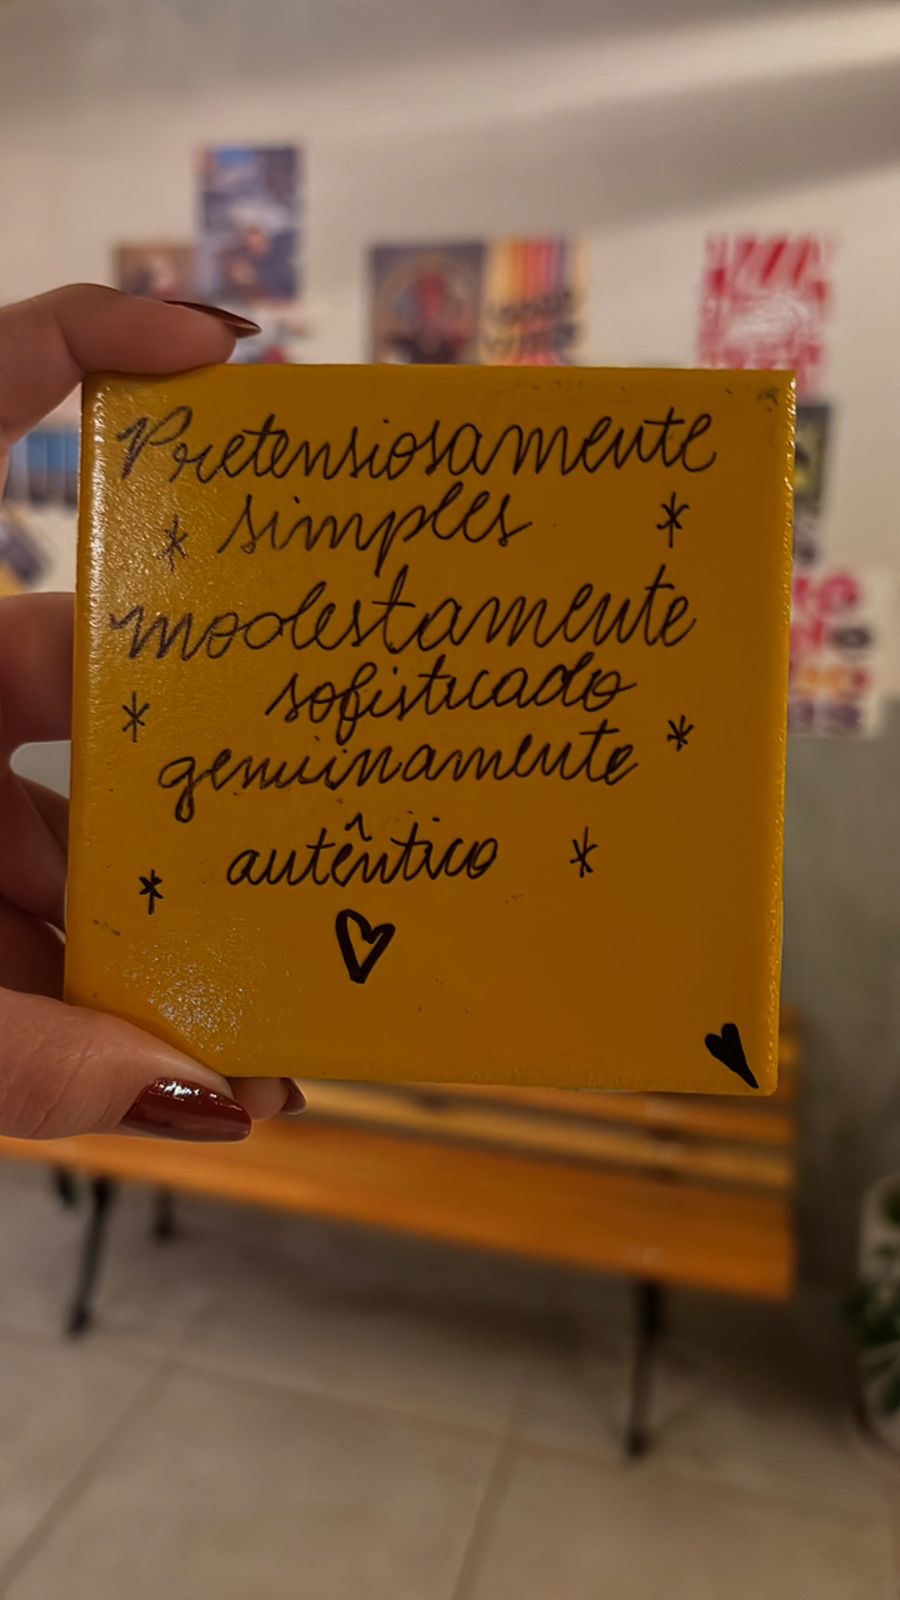 Pretensiosamente
simples
modestamente
sofisticado
genuinamente
autêntico